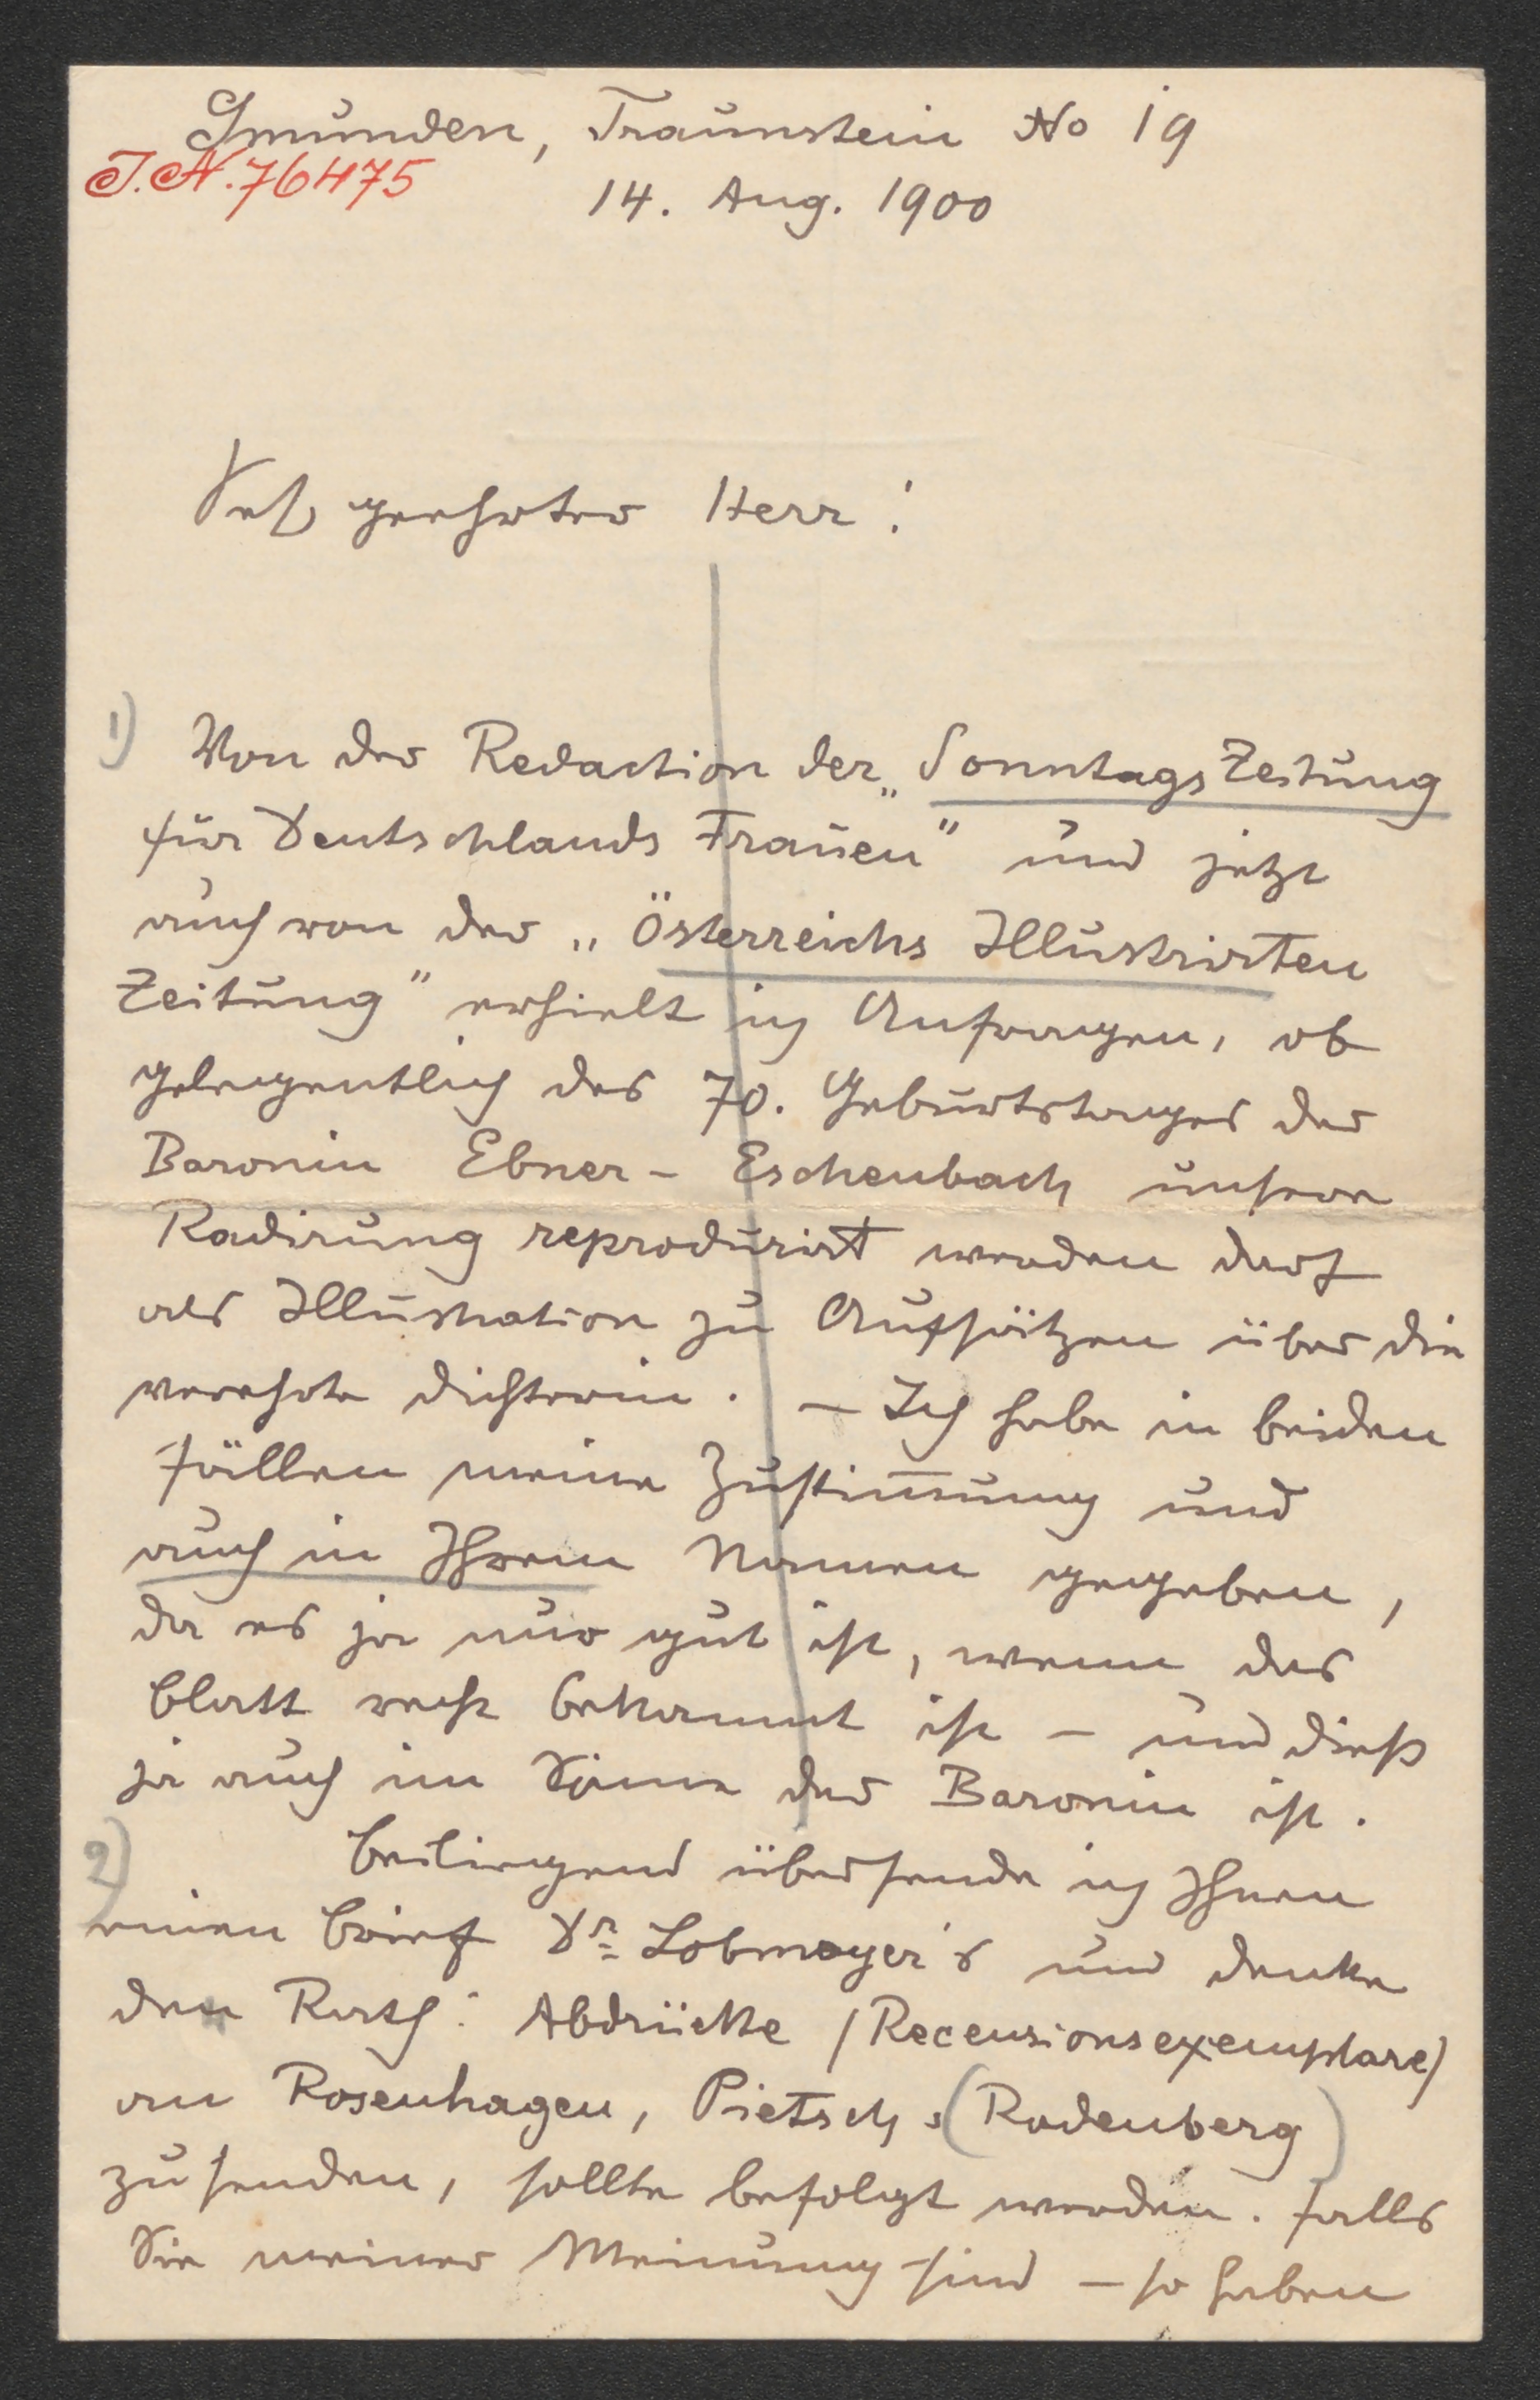 Gmunden, Traunstein No 19
J.N. 76475
14. Aug. 1900
Sehr geehrter Herr!
1) Von der Redaction der „Sonntags Zeitung
für Deutschlands Frauen" und jetzt
auch von der „Österreichs Illustrirten
Zeitung" erhielt ich Anfragen, ob
gelegentlich des 70. Geburtstages der
Baronin Ebner-Eschenbach unsere
Radirung reproducirt werden darf
als Illustration zu Aufsätzen über die
verehrte Dichterin. – Ich habe in beiden
Fällen meine Zustim̄ung und
auch in Ihrem Namen gegeben,
da es ja nur gut ist, wenn das
Blatt recht bekannt ist – und dieß
ja auch im Sinne der Baronin ist.
2) Beiliegend übersende ich Ihnen
einen Brief Dr Lobmayer's und denke
den Rath: Abdrücke /Recensionsexemplare/
an Rosenhagen, Pietsch, (Rodenberg)
zu senden, sollte befolgt werden. Falls
Sie meiner Meinung sind – so haben